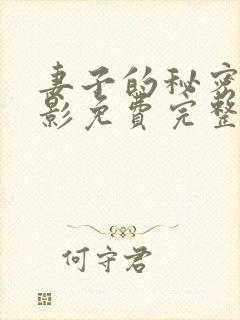 妻子的秘密
影免费完整
何守君